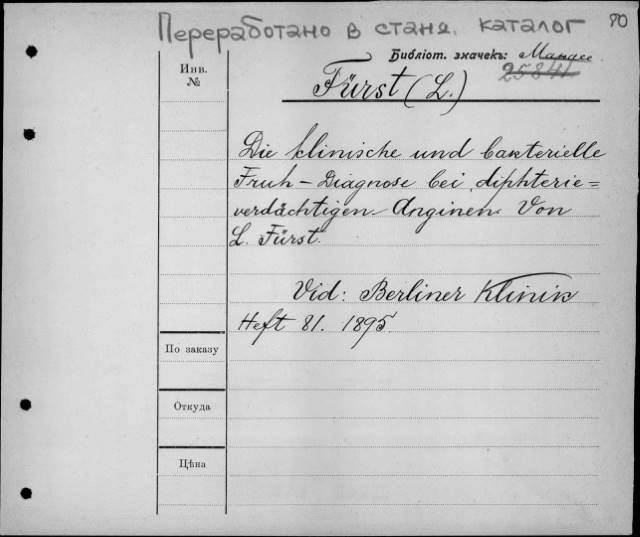 Переработано в станд. каталог
80
Библіот. значекъ:
25841
Инв.
№
Fürst (L.)
Die klinische und bakterielle
Fruh-Diagnose bei diphterie=
verdächtigen Anginen. Von
L. Fürst.
Vid: Berliner Klinik
Heft 81. 1895
По заказу
Откуда
Цѣна